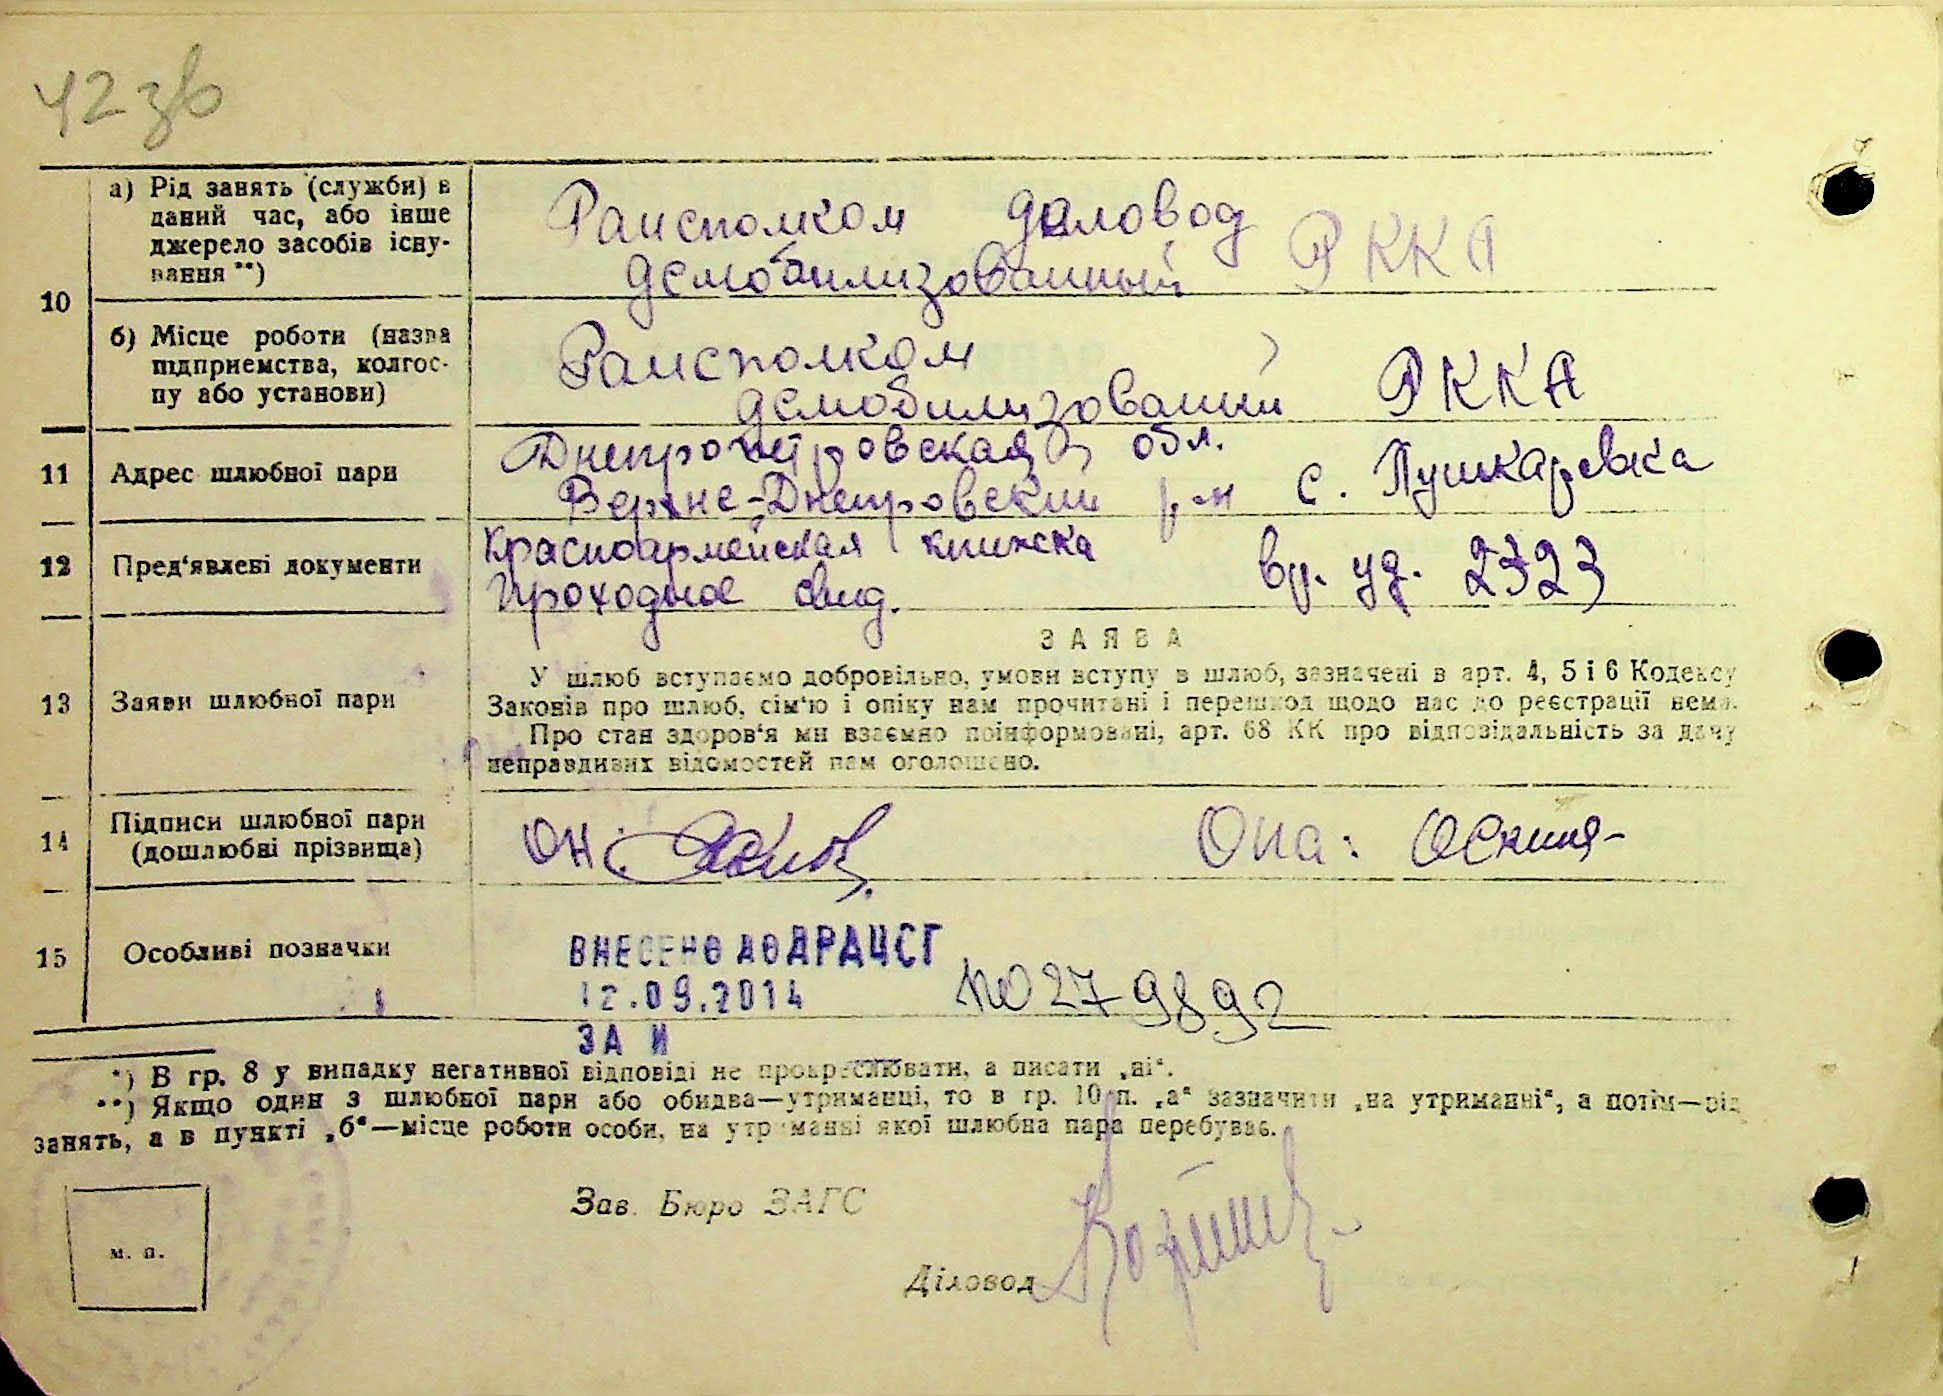 42 зв
10
а) Рід занять (служби) в
даний час, або інше
джерело засобів існу-
вання **)
Раисполком деловод
демобилизованный РККА
б) Місце роботи (назва
підприємства, колгос-
пу або установи)
Раисполком
демобилизований РККА
11 Адрес шлюбної пари
Днепропетровская обл.
Верхне-Днепровский р-н с. Пушкаревка
12 Пред‘явлені документи
Красноармейская книжка
Проходное свид. вр. уд. 2323
ЗАЯВА
13 Заяви шлюбної пари
У шлюб вступаємо добровільно, умови вступу в шлюб, зазначені в арт. 4, 5 і 6 Кодексу
Законів про шлюб, сім‘ю і опіку нам прочитані і перешкод щодо нас до реєстрації нема.
Про стан здоров‘я ми взаємно поінформовані, арт. 68 КК про відповідальність за дачу
неправдивих відомостей нам оголошено.
14 Підписи шлюбної пари
(дошлюбні прізвища)
Он: Она:
15 Особливі позначки
ВНЕСЕНО ДО ДРАЦСГ
12.09.2014 N0279892
ЗА И
*) В гр. 8 у випадку негативної відповіді не прокреслювати, а писати „ні“.
**) Якщо один з шлюбної пари або обидва—утриманці, то в гр. 10 п. „а“ зазначити „на утриманні“, а потім—рід
занять, а в пункті „б“—місце роботи особи, на утриманні якої шлюбна пара перебуває.
Зав. Бюро ЗАГС
м. п.
Діловод